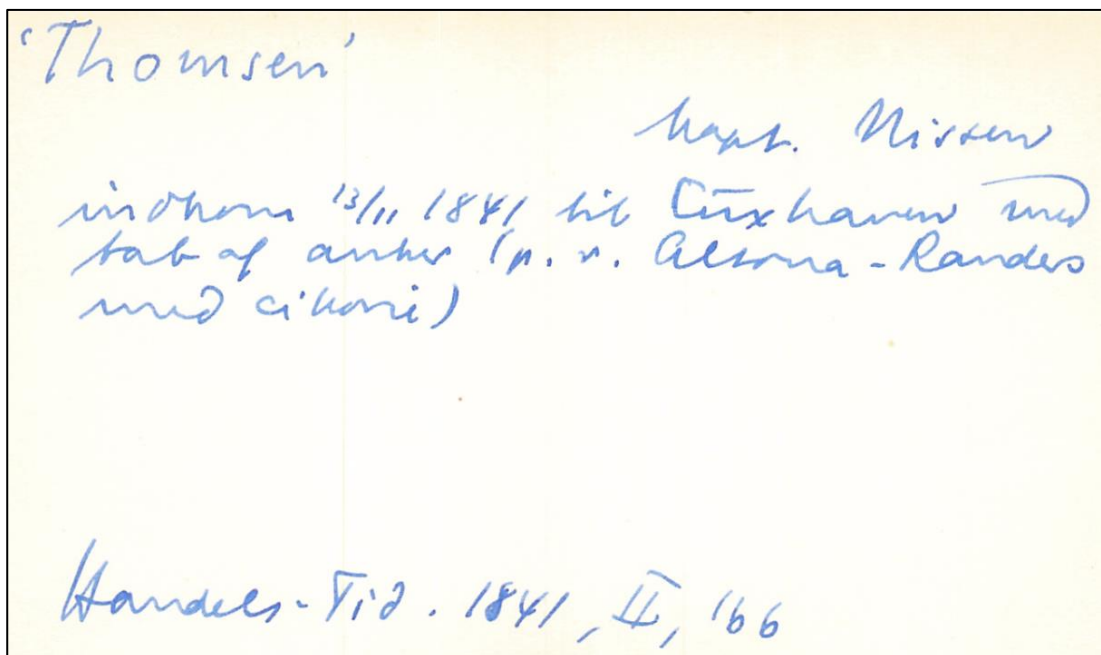 'Thomsen'
kapt. Nissen
indkom 13/11 1841 til Cuxhaven med
tab af anker (p. r. Altona - Randers
med cikorie)
Handels-Tid. 1841, II, 166